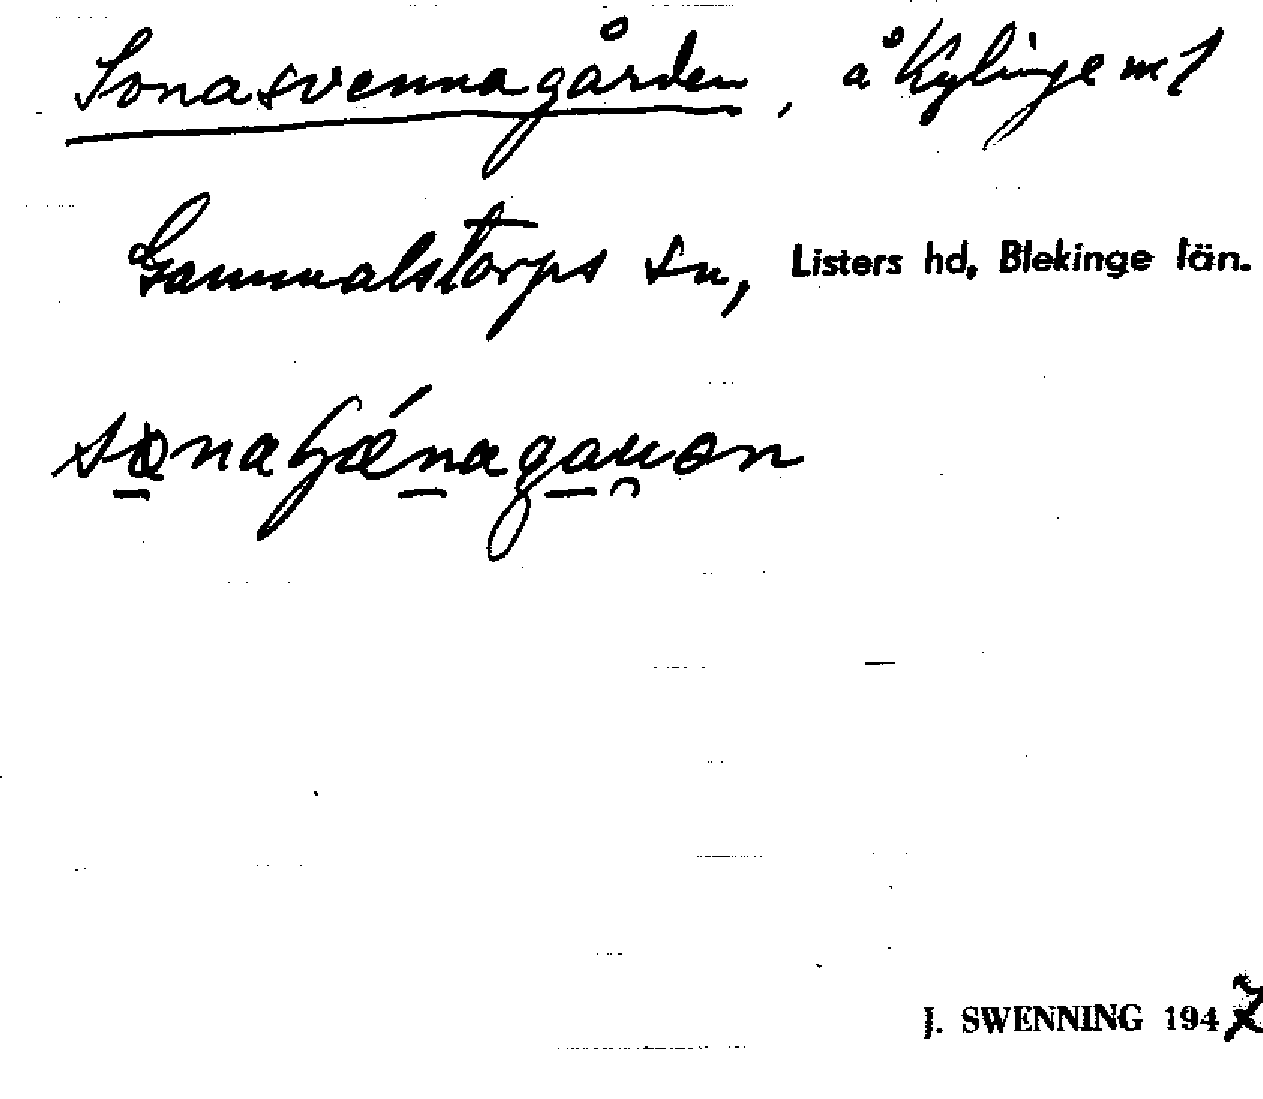 Sonasvennagården, å Kylinge nr 1
Gammalstorps sn, Listers hd, Blekinge län.
J. SWENNING 1947